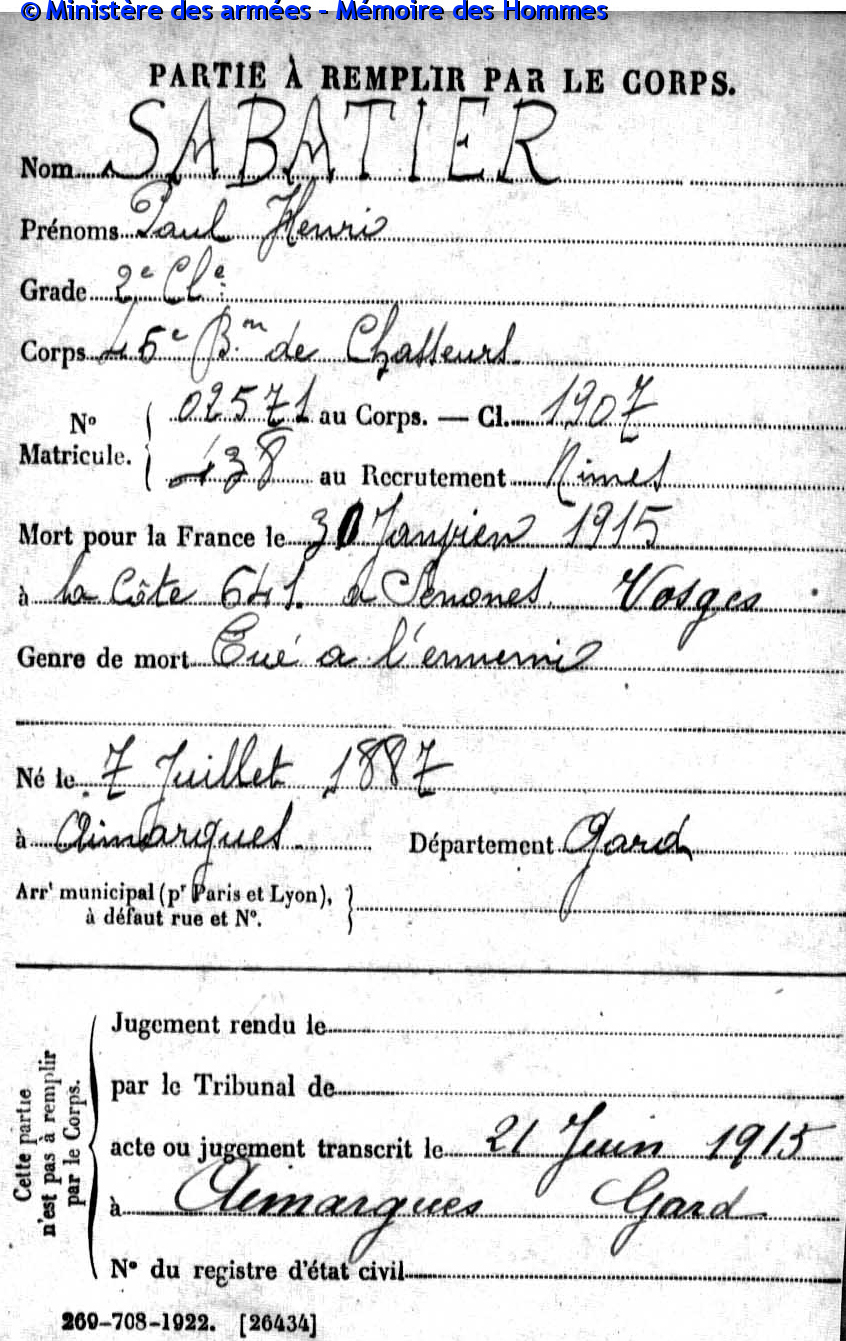 © Ministère des armées - Mémoire des Hommes
PARTIE À REMPLIR PAR LE CORPS.
Nom SABATIER
Prénoms Paul Henri
Grade 2e Cle
Corps 45e Bon de Chasseurs
No Matricule. 02571 au Corps. — Cl. 1907
438 au Recrutement Nimes
Mort pour la France le 30 Janvier 1915
à la Côte 641. à Senones Vosges
Genre de mort Tué a l'ennemi
Né le 7 Juillet 1887
à Aimargues Département Gard
Arrt municipal (pr Paris et Lyon),
à défaut rue et No.
Cette partie
n'est pas à remplir
par le Corps.
Jugement rendu le
par le Tribunal de
acte ou jugement transcrit le 21 Juin 1915
à Aimargues Gard
No du registre d'état civil
269-708-1922. [26434]